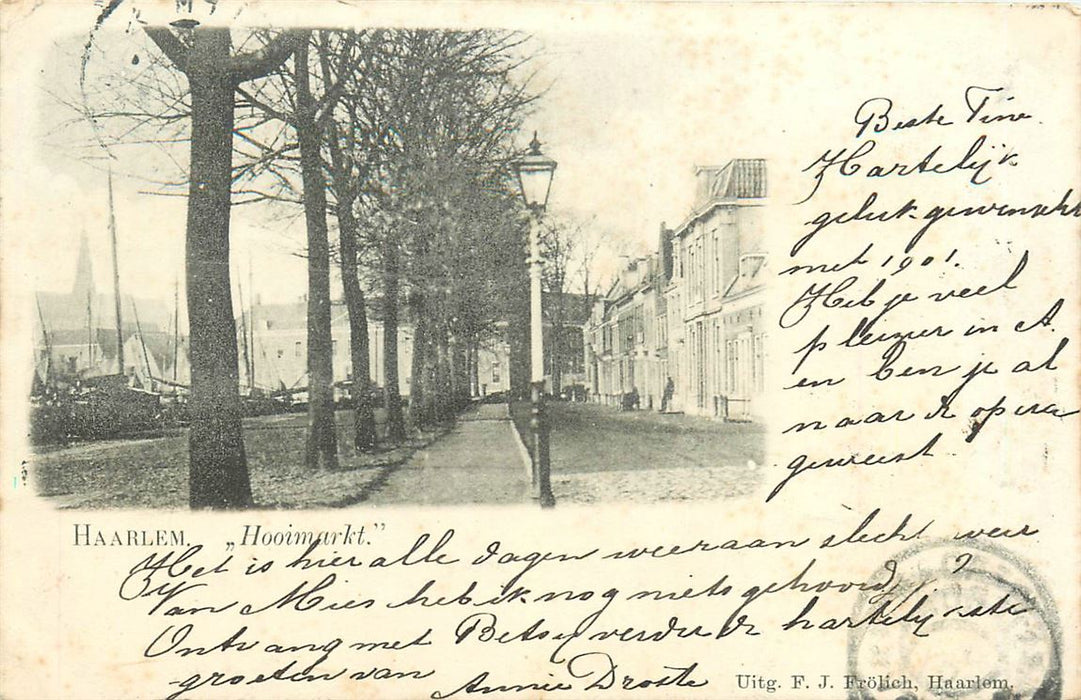 Beste Tine.
Hartelijk
geluk gewenscht
met 1901.
Heb je veel
plezier in A.
en ben je al
naar de opera
geweest
HAARLEM. „Hooimarkt.”
Het is hier alle dagen weeraan slecht weer
Van Mies heb ik nog niets gehoord, jij?
Ontvang met Betsy verder de hartelijkste
groeten van Annie Droste
Uitg. F. J. Frölich, Haarlem.